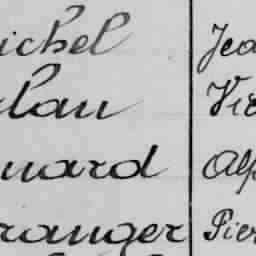 ichel Jea
lau Vic
nard Alp
ranger Pier